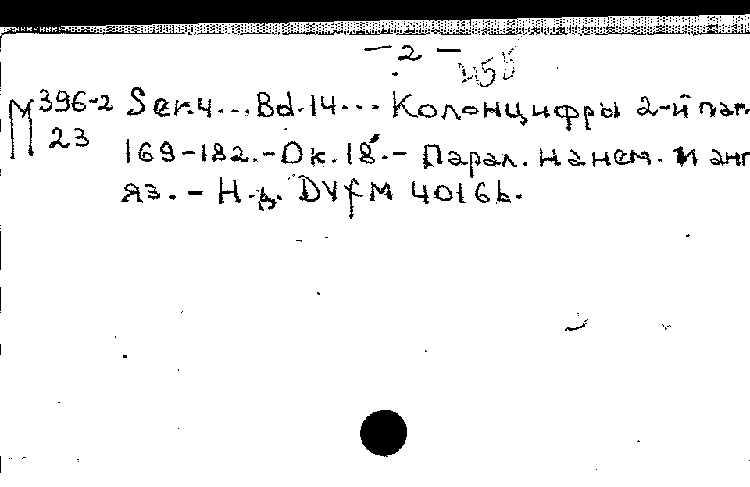 — 2 —
М 396-2 Ser.4...Bd.14... Колонцифры 2-й паг.
23 169-182.-Ок.18.- Парал. на нем. и анг
яз. - Н.д. DVfM 4016b.